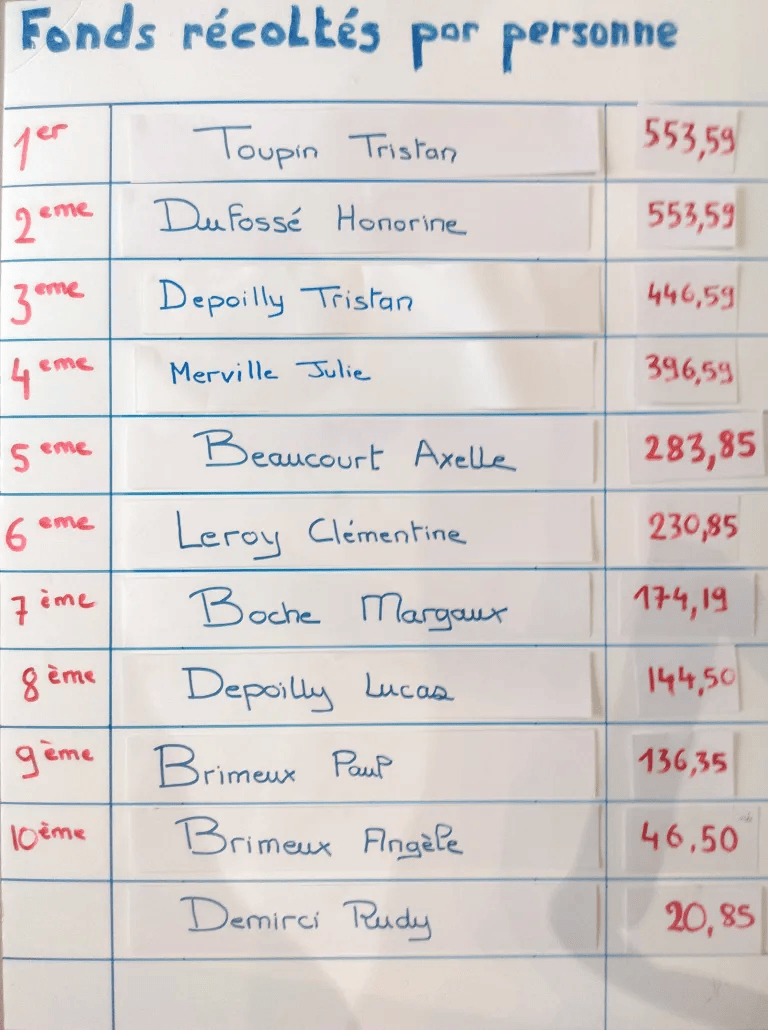 Fonds récoltés par personne
1er Toupin Tristan 553,59
2eme Dufossé Honorine 553,59
3eme Depoilly Tristan 446,59
4eme Merville Julie 396,59
5eme Beaucourt Axelle 283,85
6eme Leroy Clémentine 230,85
7ème Boche Margaux 174,19
8ème Depoilly Lucas 144,50
9ème Brimeux Paul 136,35
10ème Brimeux Angèle 46,50
Demirci Rudy 20,85